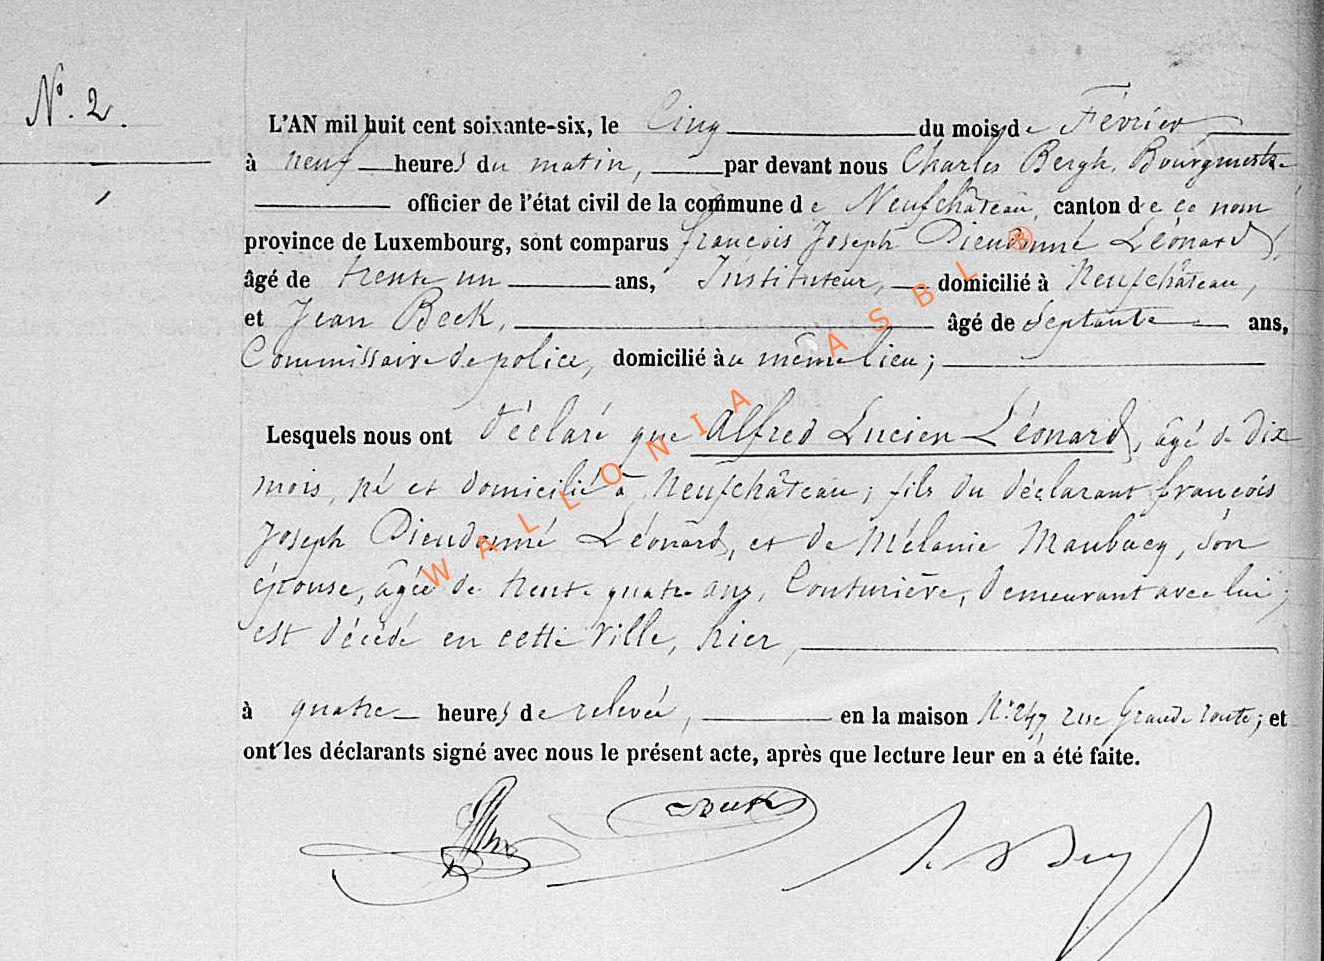 N°. 2.
L'AN mil huit cent soixante-six, le Cinq du mois de Février
à neuf heures du matin, par devant nous Charles Bergh, Bourgmestre
officier de l'état civil de la commune de Neufchâteau, canton de ce nom
province de Luxembourg, sont comparus françois Joseph Dieudonné Léonard,
âgé de trente un ans, Instituteur, domicilié à Neufchâteau,
et Jean Beck, âgé de Septante ans,
Commissaire de police, domicilié au même lieu;
Lesquels nous ont déclaré que Alfred Lucien Léonard, âgé de dix
mois, né et domicilié à Neufchâteau; fils du déclarant françois
Joseph Dieudonné Léonard, et de Mélanie Maubacq, son
épouse, âgée de trente quatre ans, Couturière, demeurant avec lui;
est décédé en cette ville, hier,
à quatre heures de relevée, en la maison N° 247, rue Grande route; et
ont les déclarants signé avec nous le présent acte, après que lecture leur en a été faite.
Beck
WALLONIA ASBL ®